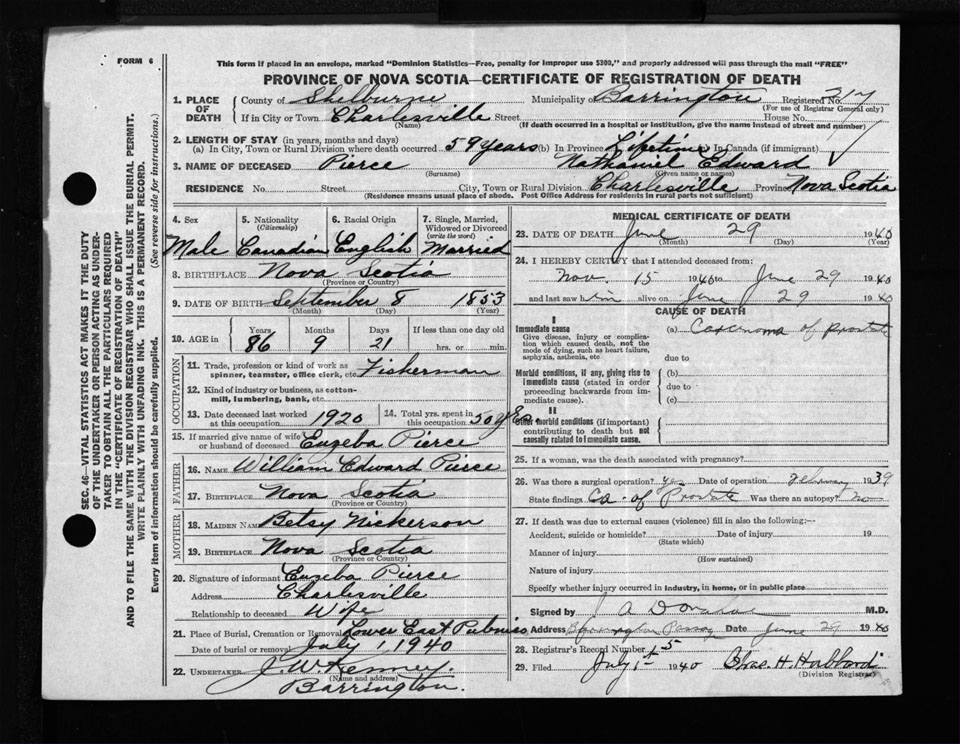 FORM 6
This form if placed in an envelope, marked "Dominion Statistics—Free, penalty for improper use $300," and properly addressed will pass through the mail "FREE"
PROVINCE OF NOVA SCOTIA—CERTIFICATE OF REGISTRATION OF DEATH
SEC. 46—VITAL STATISTICS ACT MAKES IT THE DUTY
OF THE UNDERTAKER OR PERSON ACTING AS UNDER-
TAKER TO OBTAIN ALL THE PARTICULARS REQUIRED
IN THE "CERTIFICATE OF REGISTRATION OF DEATH"
AND TO FILE THE SAME WITH THE DIVISION REGISTRAR WHO SHALL ISSUE THE BURIAL PERMIT.
WRITE PLAINLY WITH UNFADING INK. THIS IS A PERMANENT RECORD.
Every item of information should be carefully supplied. (See reverse side for instructions.)
1. PLACE OF DEATH County of Shelburne Municipality Barrington Registered No. 217
(For use of Registrar General only)
If in City or Town Charlesville Street House No.
(Name) (If death occurred in a hospital or institution, give the name instead of street and number)
2. LENGTH OF STAY (in years, months and days)
(a) In City, Town or Rural Division where death occurred 59 years (b) In Province Lifetime In Canada (if immigrant)
3. NAME OF DECEASED Pierce Nathaniel Edward
(Surname) (Given name or names)
RESIDENCE No. Street City, Town or Rural Division Charlesville Province Nova Scotia
(Residence means usual place of abode. Post Office Address for residents in rural parts not sufficient)
4. Sex 5. Nationality (Citizenship) 6. Racial Origin 7. Single, Married, Widowed or Divorced (write the word)
Male Canadian English Married
8. BIRTHPLACE Nova Scotia
(Province or Country)
9. DATE OF BIRTH September 8 1853
(Month) (Day) (Year)
10. AGE in Years Months Days If less than one day old
86 9 21 hrs. or min.
OCCUPATION
11. Trade, profession or kind of work as spinner, teamster, office clerk, etc. Fisherman
12. Kind of industry or business, as cotton-mill, lumbering, bank, etc.
13. Date deceased last worked at this occupation 1920 14. Total yrs. spent in this occupation 50 yrs
15. If married give name of wife or husband of deceased Euzeba Pierce
FATHER
16. NAME William Edward Pierce
17. BIRTHPLACE Nova Scotia
MOTHER
18. MAIDEN NAME Betsy Nickerson
19. BIRTHPLACE Nova Scotia
(Province or Country)
20. Signature of informant Euzeba Pierce
Address Charlesville
Relationship to deceased Wife
21. Place of Burial, Cremation or Removal Lower East Pubnico
Date of burial or removal July 1, 1940
22. UNDERTAKER J. W. Kenney.
(Name and address)
Barrington.
MEDICAL CERTIFICATE OF DEATH
23. DATE OF DEATH June 29 1940
(Month) (Day) (Year)
24. I HEREBY CERTIFY that I attended deceased from:
Nov. 15 1940 to June 29 1940
and last saw him alive on June 29 1940
CAUSE OF DEATH
I
Immediate cause (a) Carcinoma of prostate
Give disease, injury or complication which caused death, not the mode of dying, such as heart failure, asphyxia, asthenia, etc.
due to
Morbid conditions, if any, giving rise to immediate cause (stated in order proceeding backwards from immediate cause). (b)
due to
(c)
II
Other morbid conditions (if important) contributing to death but not causally related to immediate cause.
25. If a woman, was the death associated with pregnancy?
26. Was there a surgical operation? yes Date of operation February 1939
State findings Ca - of Prostate Was there an autopsy? no
27. If death was due to external causes (violence) fill in also the following:—
Accident, suicide or homicide? Date of injury 19
(State which)
Manner of injury
(How sustained)
Nature of injury
Specify whether injury occurred in industry, in home, or in public place
Signed by J A M.D.
Address Barrington Passage Date June 29 1940
28. Registrar's Record Number 15
29. Filed July 1st 1940 Chas. H. Hubbard
(Division Registrar)